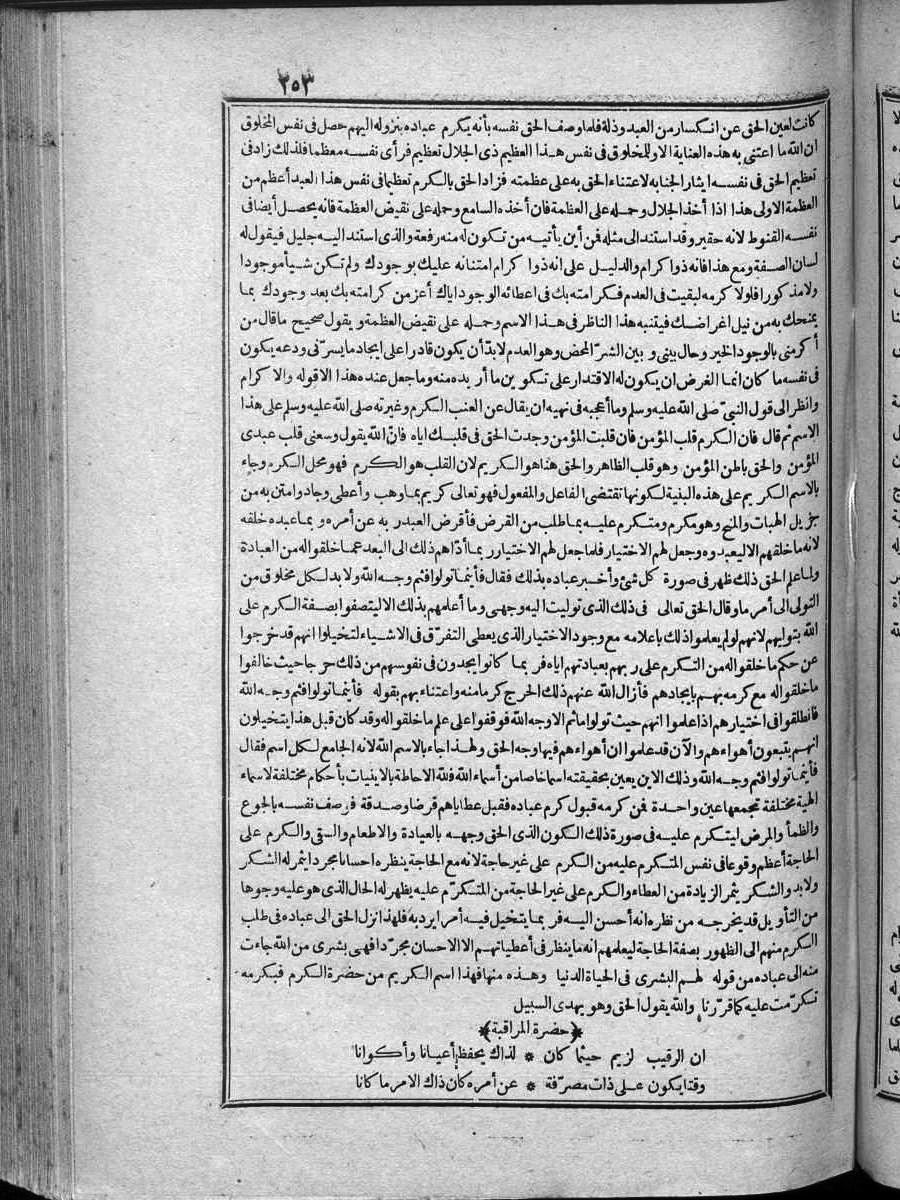 ٣٥٣
كانت لعين الحق عن انكسار من العبد وذلة فلما وصف الحق نفسه بأنه يكرم عباده بنزوله اليهم حصل في نفس المخلوق
ان الله ما اعتنى به هذه العناية الا وللمخلوق في نفس هذا العظيم ذى الجلال تعظيم فرأى نفسه معظما فلذلك زاد فى
تعظيم الحق فى نفسه ايثارا لجنابه لاعتناء الحق به على عظمته فزاد الحق بالكرم تعظيما فى نفس هذا العبد أعظم من
العظمة الاولى هذا اذا أخذ الجلال وحمله على العظمة فان أخذه السامع وحمله على نقيض العظمة فانه يحصل أيضا فى
نفسه القنوط لانه حقير وقد استند الى مثله فمن أين يأتيه من تكون له منه رفعة والذى استند اليه جليل فيقول له
لسان الصفة ومع هذا فانه ذوا كرام والدليل على انه ذوا كرام امتنانه عليك بوجودك ولم تكن شيأ موجودا
ولا مذكورا فلولا كرمه لبقيت فى العدم فكرامته بك فى اعطائه الوجود اياك أعز من كرامته بك بعد وجودك بما
يمنحك به من نيل اغراضك فيتنبه هذا الناظر فى هذا الاسم وحمله على نقيض العظمة ويقول صحيح ما قال من
أكرمنى بالوجود الخير وحال بينى وبين الشر المحض وهو العدم لا بد أن يكون قادرا على ايجاد ما يسرنى ودعه يكون
فى نفسه ما كان انما الغرض ان يكون له الاقتدار على تكوين ما أريده منه وما جعل عنده هذا الا قوله والاكرام
وانظر الى قول النبى صلى الله عليه وسلم وما أعجبه فى نهيه ان يقال عن العنب الكرم وغيرته صلى الله عليه وسلم على هذا
الاسم ثم قال فان الكرم قلب المؤمن فان قلبت المؤمن وجدت الحق فى قلبك اياه فان الله يقول وسعنى قلب عبدى
المؤمن والحق باطن المؤمن وهو قلب الظاهر والحق هنا هو الكريم لان القلب هو الكرم فهو محل الكرم وجاء
بالاسم الكريم على هذه البنية لكونها تقتضى الفاعل والمفعول فهو تعالى كريم بما وهب وأعطى وجاد وامتن به من
جزيل الهبات والمنح وهو مكرم ومتكرم عليه بما طلب من القرض فأقرض العبد ربه عن أمره وبما عبده خلقه
لانه ما خلقهم الا ليعبدوه وجعل لهم الاختيار فلما جعل لهم الاختيار ربما أداهم ذلك الى البعد عما خلقوا له من العبادة
ولما علم الحق ذلك ظهر فى صورة كل شئ وأخبر عباده بذلك فقال فأينما تولوا فثم وجه الله ولا بد لكل مخلوق من
التولى الى أمر ما وقال الحق تعالى فى ذلك الذى توليت اليه وجهى وما أعلمهم بذلك الا ليتصفوا بصفة الكرم على
الله بتوليهم لانهم لو لم يعلموا ذلك باعلامه مع وجود الاختيار الذى يعطى التفرق فى الاشياء لتخيلوا انهم قد خرجوا
عن حكم ما خلقوا له من التكرم على ربهم بعبادتهم اياه فربما كانوا يجدون فى نفوسهم من ذلك حرجا حيث خالفوا
ما خلقوا له مع كرمه بهم بايجادهم فأزال الله عنهم ذلك الحرج كرما منه واعتناء بهم بقوله فأينما تولوا فثم وجه الله
فانطلقوا فى اختيارهم اذا علموا انهم حيث تولوا ما ثم الا وجه الله فوقفوا على علم ما خلقوا له وقد كان قبل هذا يتخيلون
انهم يتبعون أهواءهم والآن قد علموا ان أهواءهم فيها وجه الحق ولهذا جاء بالاسم الله لانه الجامع لكل اسم فقال
فأينما تولوا فثم وجه الله وذلك الاين يعين بحقيقته اسما خاصا من أسماء الله فلله الاحاطة بالاينيات بأحكام مختلفة لاسماء
الهية مختلفة تجمعها عين واحدة فمن كرمه قبول كرم عباده فقبل عطاياهم قرضا وصدقة فوصف نفسه بالجوع
والظمأ والمرض ليتكرم عليه فى صورة ذلك الكون الذى الحق وجهه بالعيادة والاطعام والسقى والكرم على
الحاجة أعظم وقوعا فى نفس المتكرم عليه من الكرم على غير حاجة لانه مع الحاجة ينظره احسانا مجردا يثمر له الشكر
ولا بد والشكر يثمر الزيادة من العطاء والكرم على غير الحاجة من المتكرم عليه يظهر له الحال الذى هو عليه وجوها
من التأويل قد يخرجه من نظره انه أحسن اليه فربما يتخيل فيه أمرا يرد به فلهذا نزل الحق الى عباده فى طلب
الكرم منهم الى الظهور بصفة الحاجة ليعلمهم انه ما ينظر فى أعطياتهم الا الاحسان مجردا فهى بشرى من الله جاءت
منه الى عباده من قوله لهم البشرى فى الحياة الدنيا وهذه منها فهذا اسم الكريم من حضرة الكرم فبكرمه
تكرمت عليه كما قررنا والله يقول الحق وهو يهدى السبيل
﴿حضرة المراقبة﴾
ان الرقيب لزيم حيثما كان * لذاك يحفظ أعيانا وأكوانا
وقتا يكون على ذات مصرفة * عن أمره كان ذاك الامر ما كانا